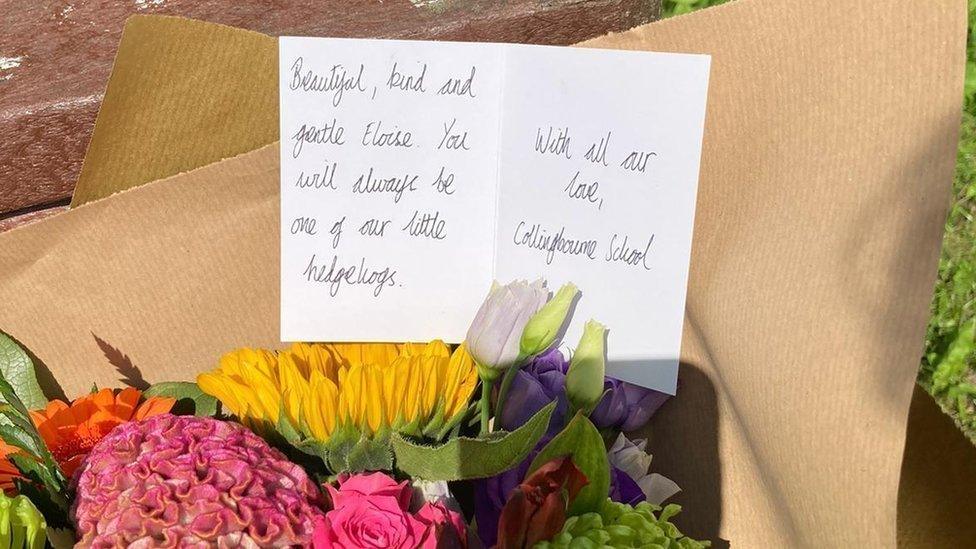 Beautiful, kind and
gentle Eloise. You
will always be
one of our little
hedgehogs.
With all our
love,
Collingbourne School